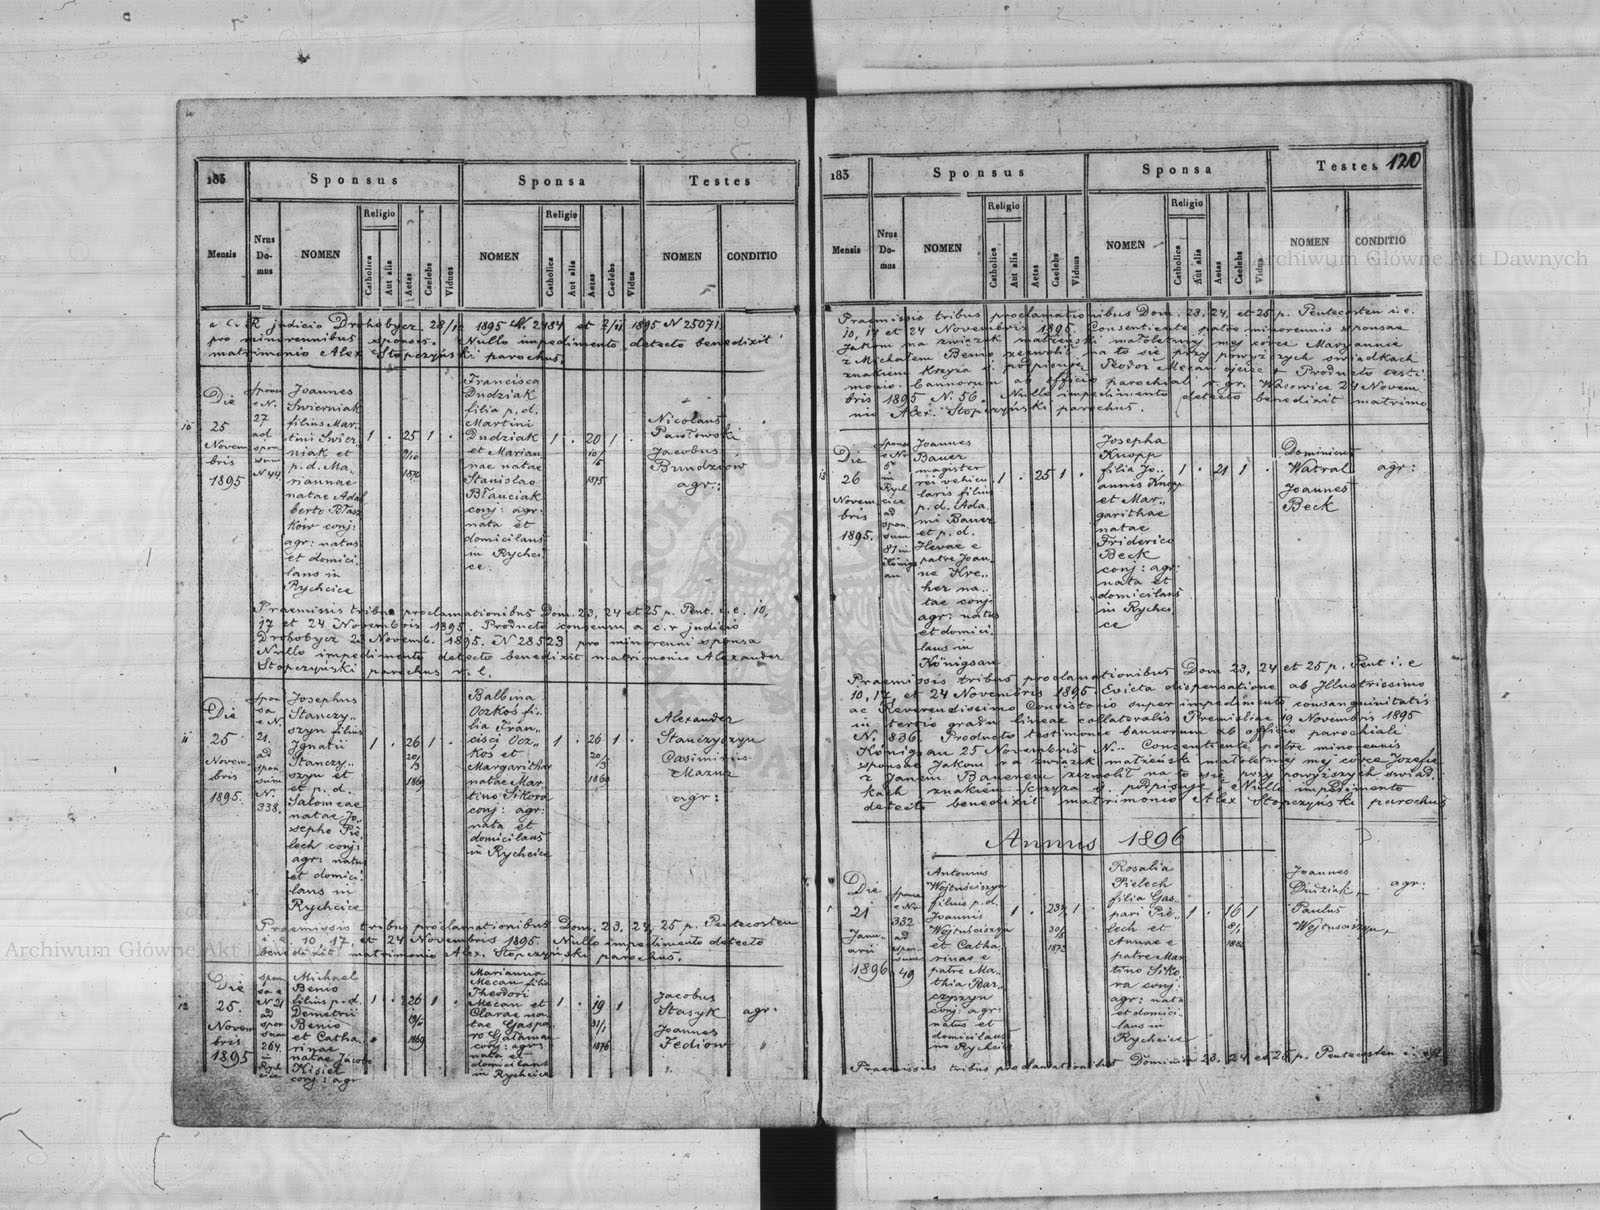 185
Sponsus
Sponsa
Testes
Mensis
Nrus Domus
NOMEN
Religio
Catholica
Aut alia
Aetas
Caelebs
Viduus
NOMEN
Religio
Catholica
Aut alia
Aetas
Caelebs
Vidua
NOMEN
CONDITIO
a C. R. judicio Drohobycz 28/10 1895 N. 2484 et 2/11 1895 N 25071
pro minorennibus sponsis. Nullo impedimento detecto benedixit
matrimonio Alex Stopczyński parochus.
10
Die
25
Novem
bris
1895
sponsa
e N.
27
ad
spon
sum
N 44
Joannes
Swierniak
filius Mar-
tini Swier
niak et
p. d. Ma-
riannae
natae Adal
berto Błasz
ków conj:
agr: natus
et domici-
lans in
Rychcice
1 . 25 1 .
9/10
1870
Francisca
Dudziak
filia p. d.
Martini
Dudziak
et Marian
nae natae
Stanislao
Błauciak
conj: agr:
nata et
domicilans
in Rychci
ce
1 . 20 1 .
10/5
1875
Nicolaus
Pawłowski
Jacobus
Bundziów
agr:
Praemissis tribus proclamationibus Dom. 23, 24 et 25 p. Pent. i. e. 10,
17 et 24 Novembris 1895. Producto consensu a c. r judicio
Drohobycz 23 Novemb. 1895. N 28523 pro minorenni sponsa
Nullo impedimento detecto benedixit matrimonio Alexander
Stopczyński parochus r. l.
11
Die
25
Novem-
bris
1895.
spon
sa
e N
21.
ad
spon
sum
N.
338.
Josephus
Stanczy-
szyn filius
Ignatii
Stanczy-
szyn et
et p. d.
Salomeae
natae Jo-
sepho Pie-
lech conj:
agr: natus
et domici
lans in
Rychcice
1 . 26 1 .
20/3
1869
Balbina
Oczkoś fi-
lia Fran-
cisci Ocz-
koś et
Margarithae
natae Mar-
tino Sikora
conj: agr:
nata et
domicilans
in Rychcice
1 . 26 1 .
20/3
1869
Alexander
Stanczyszyn
Casimirus
Mazur
agr:
Praemissis tribus proclamationibus Dom. 23, 24, 25 p. Pentecosten
i. e. 10, 17, et 24 Novembris 1895. Nullo impedimento detecto
benedixit matrimonio Alex. Stopczyński parochus.
12
Die
25.
Novem
bris
1895
spon
sa e
N 21
ad
spon
sum
264
in
Rych
cice
Michael
Benio
filius p. d.
Demetrii
Benio
et Catha
rinae
natae Jacobo
Kisiel
conj: agr
1 . 26 1 .
1869
Marianna
Mecan filia
Theodori
Mecan et
Clarae na-
tae Gaspa
ro Gataman
conj: agr:
nata et
domicilans
in Rychcice
1 . 19 1
31/1
1876
Jacobus
Stasyk
Joannes
Fediow
agr.
183
Sponsus
Sponsa
Testes
120
Mensis
Nrus Domus
NOMEN
Religio
Catholica
Aut alia
Aetas
Caelebs
Viduus
NOMEN
Religio
Catholica
Aut alia
Aetas
Caelebs
Vidua
NOMEN
CONDITIO
Praemissis tribus proclamationibus Dom. 23. 24, et 25 p. Pentecosten i. e.
10, 17 et 24 Novembris 1895. Consentiente patre minorennis sponsae
Jakom na związek małżeński małoletniej mej córce Maryannie
z Michałem Benio zezwolił na to się przy powyższych świadkach
znakiem krzyża s. podpisuję Teodor Mecan ojciec + Producto testi
monio bannorum ab officio parochiali r. gr. Wacowice 24 Novem
bris 1895 N. 56. Nullo impedimento detecto benedixit matrimo
nio Alex. Stopczyński parochus.
13
Die
26
Novem
bris
1895.
sponsa
e N
5
in
Rych
cice
ad
spon
sum
81 in
Königs
au
Joannes
Bauer
magister
rei vehicu
laris filius
p. d. Ada-
mi Bauer
et p. d.
Hevae e
patre Joan-
ne Kre-
her na-
tae conj:
agr: natus
et domici
lans in
Königsau
1 . 25 1 .
Josepha
Knopp
filia Jo-
annis Knopp
et Mar-
garithae
natae
Friderico
Beck
conj: agr:
nata et
domicilans
in Rychci
ce
1 . 21 1 .
Dominicus
Watral
Joannes
Beck
agr:
Praemissis tribus proclamationibus Dom. 23, 24 et 25 p. Pent i. e
10, 17, et 24 Novembris 1895. Evicta dispensatione ab Illustrissimo
ac Reverendissimo Consistorio super impedimento consanguinitatis
in tertio gradu lineae collateralis Premisliae 19 Novembris 1895
N. 836. Producto testimonio bannorum ab officio parochiali
Königsau 25 Novembris N... Consentiente patre minorennis
sponsae Jakom na związek małżeński małoletniej mej córce Jozefie
z Janem Bauerem zezwolił na to się przy powyższych świad
kach znakiem krzyża ś. podpisuję Nullo impedimento
detecto benedixit matrimonio Alex Stopczyński parochus
Annus 1896
1
Die
21
Janu-
arii
1896
sponsa
e N.
332
ad
spon
sum
49
Antonius
Wojtuściszyn
filius p. d.
Joannis
Wojtuściszyn
et Catha
rinae e
patre Ma-
thia Bar-
czyszyn
conj: agr:
natus et
domicilans
in Rychcice
1 . 23 1
30/5
1873
Rosalia
Pielech
filia Gas-
pari Pie-
lech et
Annae e
patre Mar
tino Siko-
ra conj:
agr: nata
et domici-
lans in
Rychcice
1 . 16 1
Joannes
Dudziak
Paulus
Wojtuściszyn
agr:
Praemissis tribus proclamationibus Dominica 23. 24 et 25 p. Pentecosten i. e.
Archiwum Główne Akt Dawnych
Archiwum Główne Akt Dawnych